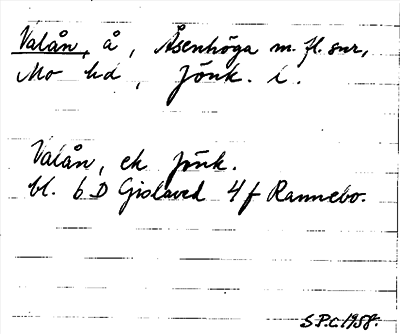 Valån, å, Åsenhöga m. fl. snr,
Mo hd, Jönk. l.
Valån, ek Jönk.
bl. 6 D Gislaved 4 f Rannebo.
S.P.C. 1958.